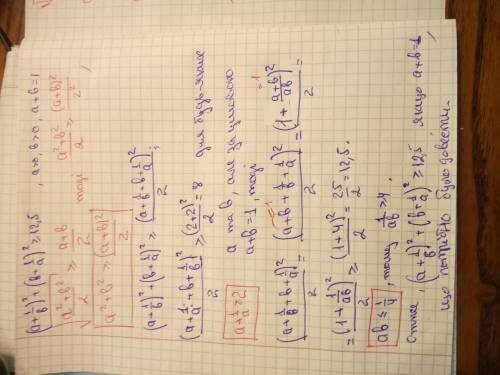 (a+1/b)²+(b+1/a)² ≥ 12,5 , a>0, b>0, a+b=1
√((a²+b²)/2) ≥ (a+b)/2 тоді (a²+b²)/2 ≥ (a+b)²/2² ;
a²+b² ≥ (a+b)²/2
(a+1/b)²+(b+1/a)² ≥ (a+1/b+b+1/a)²/2 ;
(a+1/a+b+1/b)²/2 ≥ (2+2)²/2 = 8 для будь-яких
a+1/a ≥ 2
a та b, але за умовою
a+b=1, тоді
(a+1/b+b+1/a)²/2 = (a+b+1/b+1/a)²/2 = (1+(a+b)/ab)²/2 =
=(1+1/ab)²/2 ≥ (1+4)²/2 = 25/2 = 12,5.
ab ≤ 1/4 , тому 1/ab ≥ 4.
Отже (a+1/b)²+(b+1/a)² ≥ 12,5 , якщо a+b=1,
що потрібно було довести.